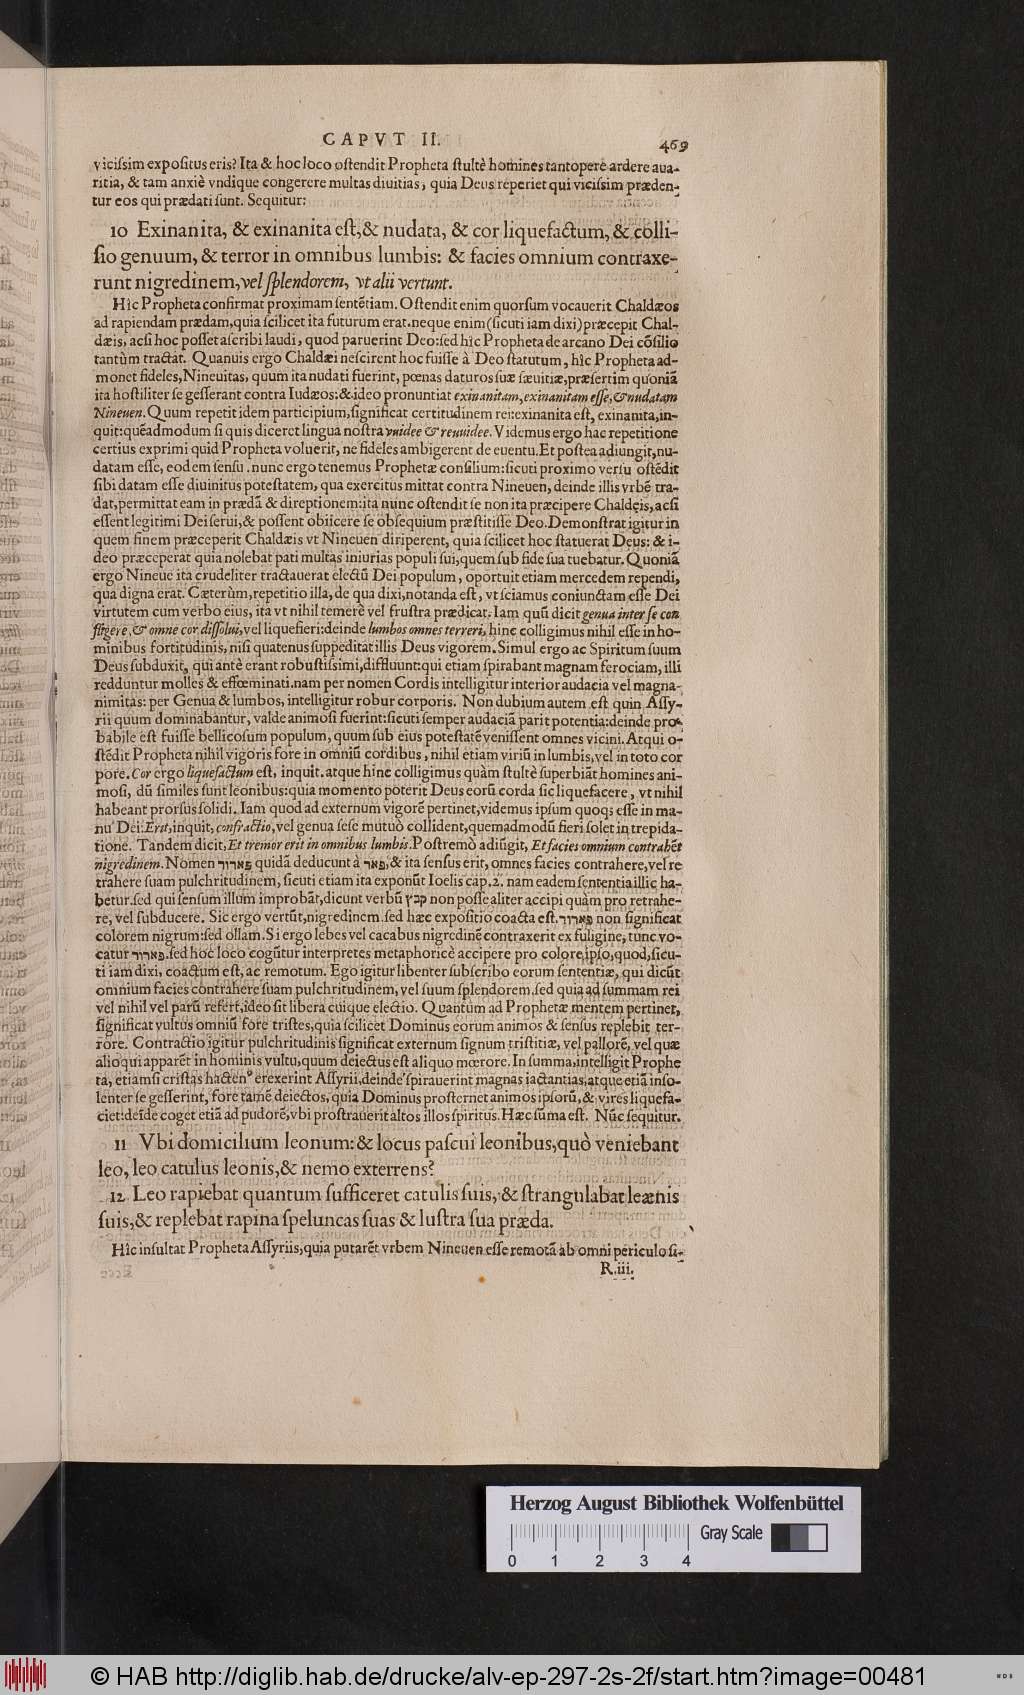 CAPVT II. 469
viciſsim expoſitus eris? Ita & hoc loco oſtendit Propheta ſtultè homines tantopere ardere aua-
ritia, & tam anxiè vndique congerere multas diuitias, quia Deus reperiet qui viciſsim præden-
tur eos qui prædati ſunt. Sequitur:
10 Exinanita, & exinanita eſt, & nudata, & cor liquefactum, & colli-
ſio genuum, & terror in omnibus lumbis: & facies omnium contraxe-
runt nigredinem, vel ſplendorem, vt alii vertunt.
Hîc Propheta confirmat proximam ſentẽtiam. Oſtendit enim quorſum vocauerit Chaldæos
ad rapiendam prædam, quia ſcilicet ita futurum erat. neque enim (ſicuti iam dixi) præcepit Chal-
dæis, acſi hoc poſſet aſcribi laudi, quod paruerint Deo: ſed hîc Propheta de arcano Dei cõſilio
tantùm tractat. Quanuis ergo Chaldæi neſcirent hoc fuiſſe à Deo ſtatutum, hîc Propheta ad-
monet fideles, Nineuitas, quum ita nudati fuerint, pœnas daturos ſuæ ſæuitiæ, præſertim quoniã
ita hoſtiliter ſe geſſerant contra Iudæos: & ideo pronuntiat exinanitam, exinanitam eſſe, & nudatam
Nineuen. Quum repetit idem participium, ſignificat certitudinem rei: exinanita eſt, exinanita, in-
quit: quẽadmodum ſi quis diceret lingua noſtra vuidee & reuuidee. Videmus ergo hac repetitione
certius exprimi quid Propheta voluerit, ne fideles ambigerent de euentu. Et poſtea adiungit, nu-
datam eſſe, eodem ſenſu. nunc ergo tenemus Prophetæ conſilium: ſicuti proximo verſu oſtẽdit
ſibi datam eſſe diuinitus poteſtatem, qua exercitus mittat contra Nineuen, deinde illis vrbẽ tra-
dat, permittat eam in prædã & direptionem: ita nunc oſtendit ſe non ita præcipere Chaldęis, acſi
eſſent legitimi Dei ſerui, & poſſent obiicere ſe obſequium præſtitiſſe Deo. Demonſtrat igitur in
quem finem præceperit Chaldæis vt Nineuen diriperent, quia ſcilicet hoc ſtatuerat Deus: & i-
deo præceperat quia nolebat pati multas iniurias populi ſui, quem ſub fide ſua tuebatur. Quoniã
ergo Nineue ita crudeliter tractauerat electũ Dei populum, oportuit etiam mercedem rependi,
qua digna erat. Cæterùm, repetitio illa, de qua dixi, notanda eſt, vt ſciamus coniunctam eſſe Dei
virtutem cum verbo eius, ita vt nihil temerè vel fruſtra prædicat. Iam quũ dicit genua inter ſe con
fligere, & omne cor diſſolui, vel liquefieri: deinde lumbos omnes terreri, hinc colligimus nihil eſſe in ho-
minibus fortitudinis, niſi quatenus ſuppeditat illis Deus vigorem. Simul ergo ac Spiritum ſuum
Deus ſubduxit, qui antè erant robuſtiſsimi, diffluunt: qui etiam ſpirabant magnam ferociam, illi
redduntur molles & effœminati. nam per nomen Cordis intelligitur interior audacia vel magna-
nimitas: per Genua & lumbos, intelligitur robur corporis. Non dubium autem eſt quin Aſſy-
rii quum dominabantur, valde animoſi fuerint: ſicuti ſemper audaciã parit potentia: deinde pro-
babile eſt fuiſſe bellicoſum populum, quum ſub eius poteſtatẽ veniſſent omnes vicini. Atqui o-
ſtẽdit Propheta nihil vigoris fore in omniũ cordibus, nihil etiam viriũ in lumbis, vel in toto cor
pore. Cor ergo liquefactum eſt, inquit. atque hinc colligimus quàm ſtultè ſuperbiãt homines ani-
moſi, dũ ſimiles ſunt leonibus: quia momento poterit Deus eorũ corda ſic liquefacere, vt nihil
habeant prorſus ſolidi. Iam quod ad externum vigorẽ pertinet, videmus ipſum quoq; eſſe in ma-
nu Dei. Erit, inquit, confractio, vel genua ſeſe mutuò collident, quemadmodũ fieri ſolet in trepida-
tione. Tandem dicit, Et tremor erit in omnibus lumbis. Poſtremò adiũgit, Et facies omnium contrahẽt
nigredinem. Nomen פארור quidã deducunt à פאר, & ita ſenſus erit, omnes facies contrahere, vel re
trahere ſuam pulchritudinem, ſicuti etiam ita exponũt Ioelis cap. 2. nam eadem ſententia illic ha-
betur. ſed qui ſenſum illum improbãt, dicunt verbũ קבץ non poſſe aliter accipi quàm pro retrahe-
re, vel ſubducere. Sic ergo vertũt, nigredinem. ſed hæc expoſitio coacta eſt. פארור non ſignificat
colorem nigrum: ſed ollam. Si ergo lebes vel cacabus nigredinẽ contraxerit ex fuligine, tunc vo-
catur פארור. ſed hoc loco cogũtur interpretes metaphoricè accipere pro colore ipſo, quod, ſicu-
ti iam dixi, coactum eſt, ac remotum. Ego igitur libenter ſubſcribo eorum ſententiæ, qui dicũt
omnium facies contrahere ſuam pulchritudinem, vel ſuum ſplendorem. ſed quia ad ſummam rei
vel nihil vel parũ refert, ideo ſit libera cuique electio. Quantum ad Prophetæ mentem pertinet,
ſignificat vultus omniũ fore triſtes, quia ſcilicet Dominus eorum animos & ſenſus replebit ter-
rore. Contractio igitur pulchritudinis ſignificat externum ſignum triſtitiæ, vel pallorẽ, vel quæ
alioqui apparẽt in hominis vultu, quum deiectus eſt aliquo mœrore. In ſumma, intelligit Prophe
ta, etiamſi criſtas hactenꝰ erexerint Aſſyrii, deinde ſpirauerint magnas iactantias, atque etiã inſo-
lenter ſe geſſerint, fore tamẽ deiectos, quia Dominus proſternet animos ipſorũ, & vires liquefa-
ciet: deĩde coget etiã ad pudorẽ, vbi proſtrauerit altos illos ſpiritus. Hæc ſũma eſt. Nũc ſequitur.
11 Vbi domicilium leonum: & locus paſcui leonibus, quò veniebant
leo, leo catulus leonis, & nemo exterrens?
12 Leo rapiebat quantum ſufficeret catulis ſuis, & ſtrangulabat leænis
ſuis, & replebat rapina ſpeluncas ſuas & luſtra ſua præda.
Hîc inſultat Propheta Aſſyriis, quia putarẽt vrbem Nineuen eſſe remotã ab omni periculo ſi-
R.iii.
Herzog August Bibliothek Wolfenbüttel
Gray Scale
0 1 2 3 4
© HAB http://diglib.hab.de/drucke/alv-ep-297-2s-2f/start.htm?image=00481
WDB